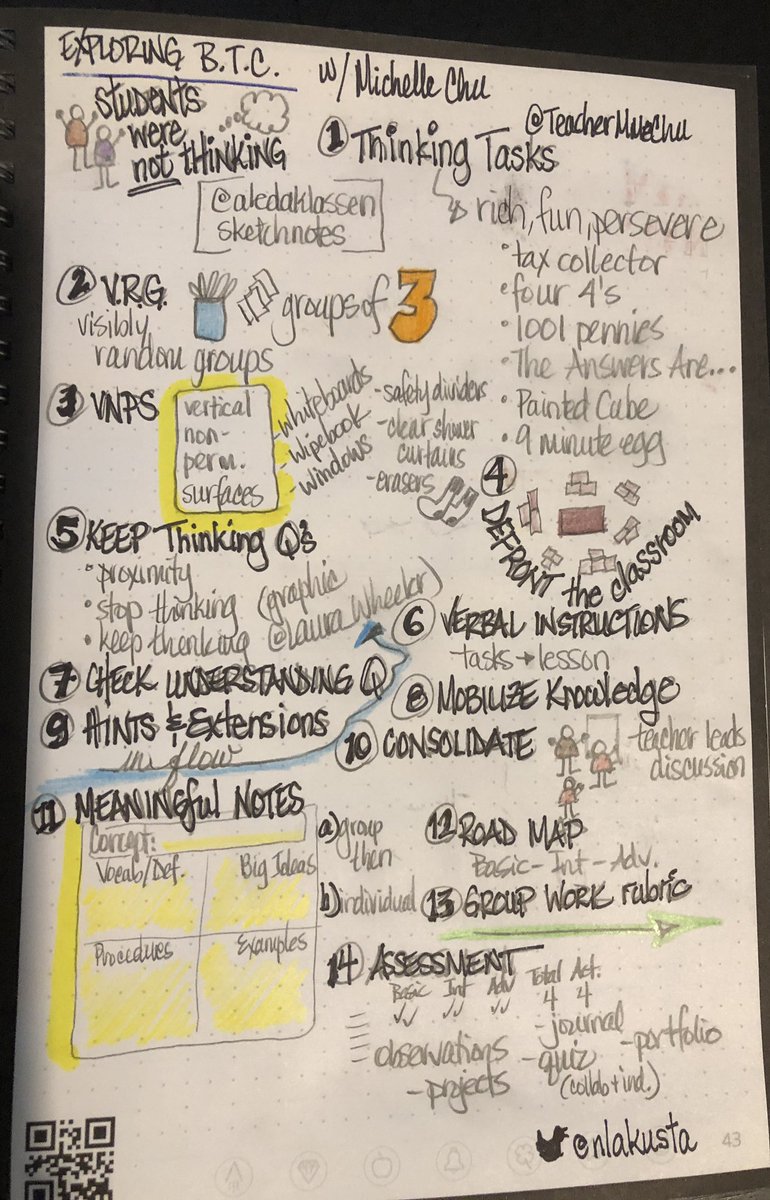 EXPLORING B.T.C.
w/ Michelle Chu
@TeacherMrsChu
students
were
not THINKING
@aledaklassen
sketchnotes
1 Thinking Tasks
rich, fun, persevere
• tax collector
• four 4's
• 1001 pennies
• The Answers Are...
• Painted Cube
• 9 minute egg
2 V.R.G.
visibly
random groups
groups of 3
3 VNPS
vertical
non-
perm.
surfaces
- whiteboards
- wipebook
- windows
- safety dividers
- clear shower
curtains
- erasers
4 DEFRONT the classroom
5 KEEP Thinking Q's
• proximity
• stop thinking
• keep thinking
(graphic
@Laura Wheeler)
6 VERBAL INSTRUCTIONS
tasks → lesson
7 CHECK UNDERSTANDING Q
8 MOBILIZE Knowledge
9 HINTS & Extensions
in flow
10 CONSOLIDATE
teacher leads
discussion
11 MEANINGful NOTES
Concept:
Vocab/Def.
Big Ideas
Procedures
Examples
a) group
then
b) individual
12 ROAD MAP
Basic - Int - Adv.
13 GROUP WORK rubric
14 ASSESSMENT
Basic Int Adv Total Act.
✓✓ ✓✓ ✓✓ 4 4
observations
- projects
- journal
- quiz
(collab + ind.)
- portfolio
@nlakusta
43